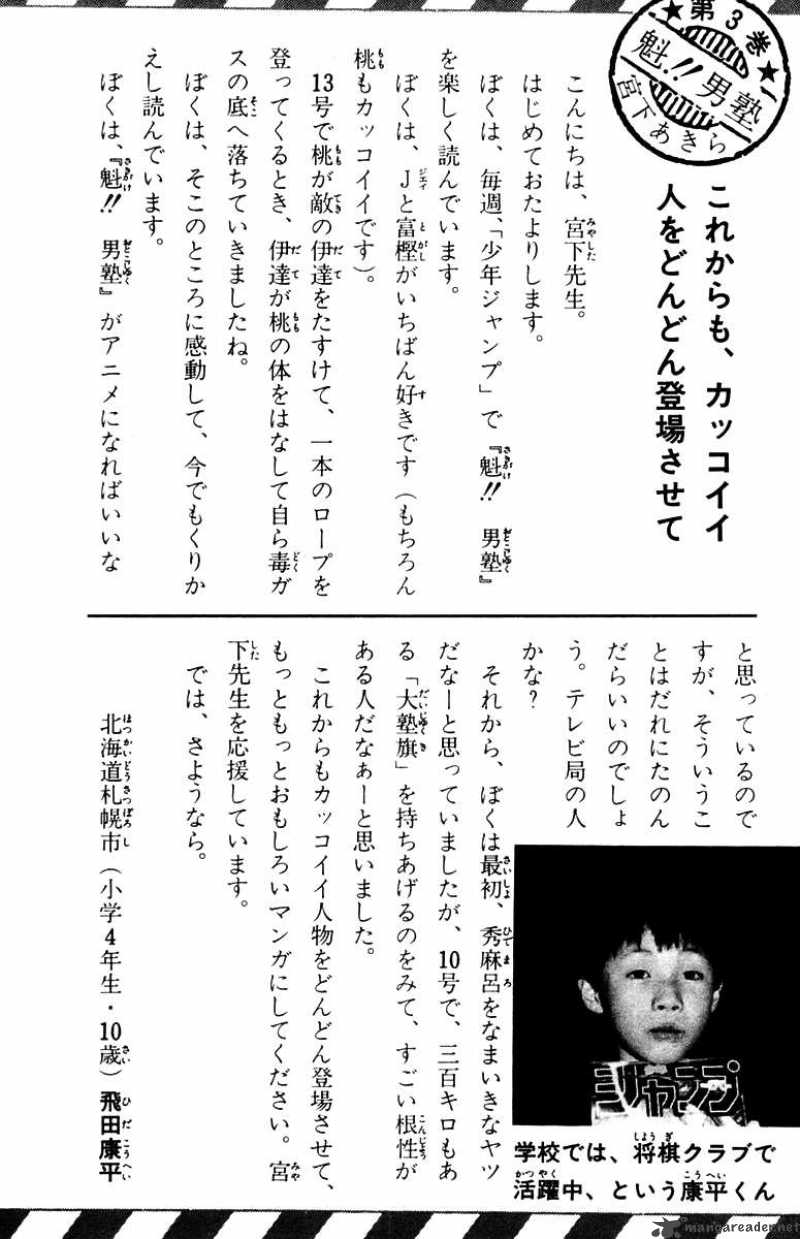 ★第3巻★
魁!!男塾
宮下あきら
これからも、カッコイイ
人をどんどん登場させて
こんにちは、宮下先生。
はじめておたよりします。
ぼくは、毎週、「少年ジャンプ」で『魁!! 男塾』
を楽しく読んでいます。
ぼくは、Jと富樫がいちばん好きです（もちろん
桃もカッコイイです）。
13号で桃が敵の伊達をたすけて、一本のロープを
登ってくるとき、伊達が桃の体をはなして自ら毒ガ
スの底へ落ちていきましたね。
ぼくは、そこのところに感動して、今でもくりか
えし読んでいます。
ぼくは、『魁!! 男塾』がアニメになればいいな
と思っているので
すが、そういうこ
とはだれにたのん
だらいいのでしょ
う。テレビ局の人
かな？
それから、ぼくは最初、秀麻呂をなまいきなヤツ
だなーと思っていましたが、10号で、三百キロもあ
る「大塾旗」を持ちあげるのをみて、すごい根性が
ある人だなぁーと思いました。
これからもカッコイイ人物をどんどん登場させて、
もっともっとおもしろいマンガにしてください。宮
下先生を応援しています。
では、さようなら。
北海道札幌市（小学4年生・10歳）飛田康平
ジャンプ
学校では、将棋クラブで
活躍中、という康平くん
mangareader.net